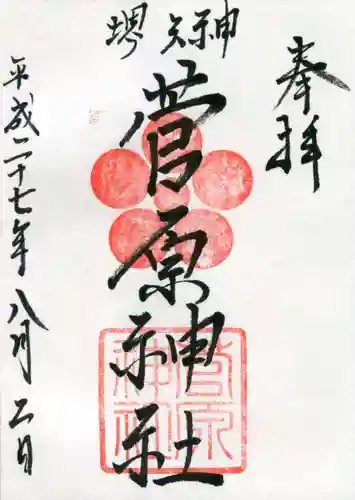 奉拝
堺天神
菅原神社
平成二十七年八月二日
菅原
神社